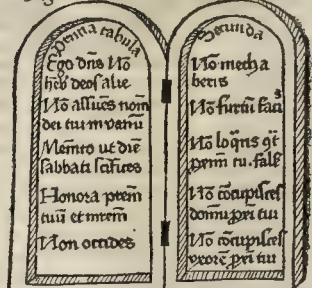 Prima tabula
Ego dn̄s Nō
hēb deos alie
Nō assūes nom̄
dei tui in vanū
Mem̄to ut diē
sabbati sc̄ifices
Honora p̄tem̄
tuū et m̄rem̄
Non occides
Secunda
Nō mecha
beris
Nō furtū faci
Nō loq̄ris 9t̄
tu. fals̄
Nō cōcupisces
domū p̄xi tui
Nō cōcupisces
vxorē p̄xi tui